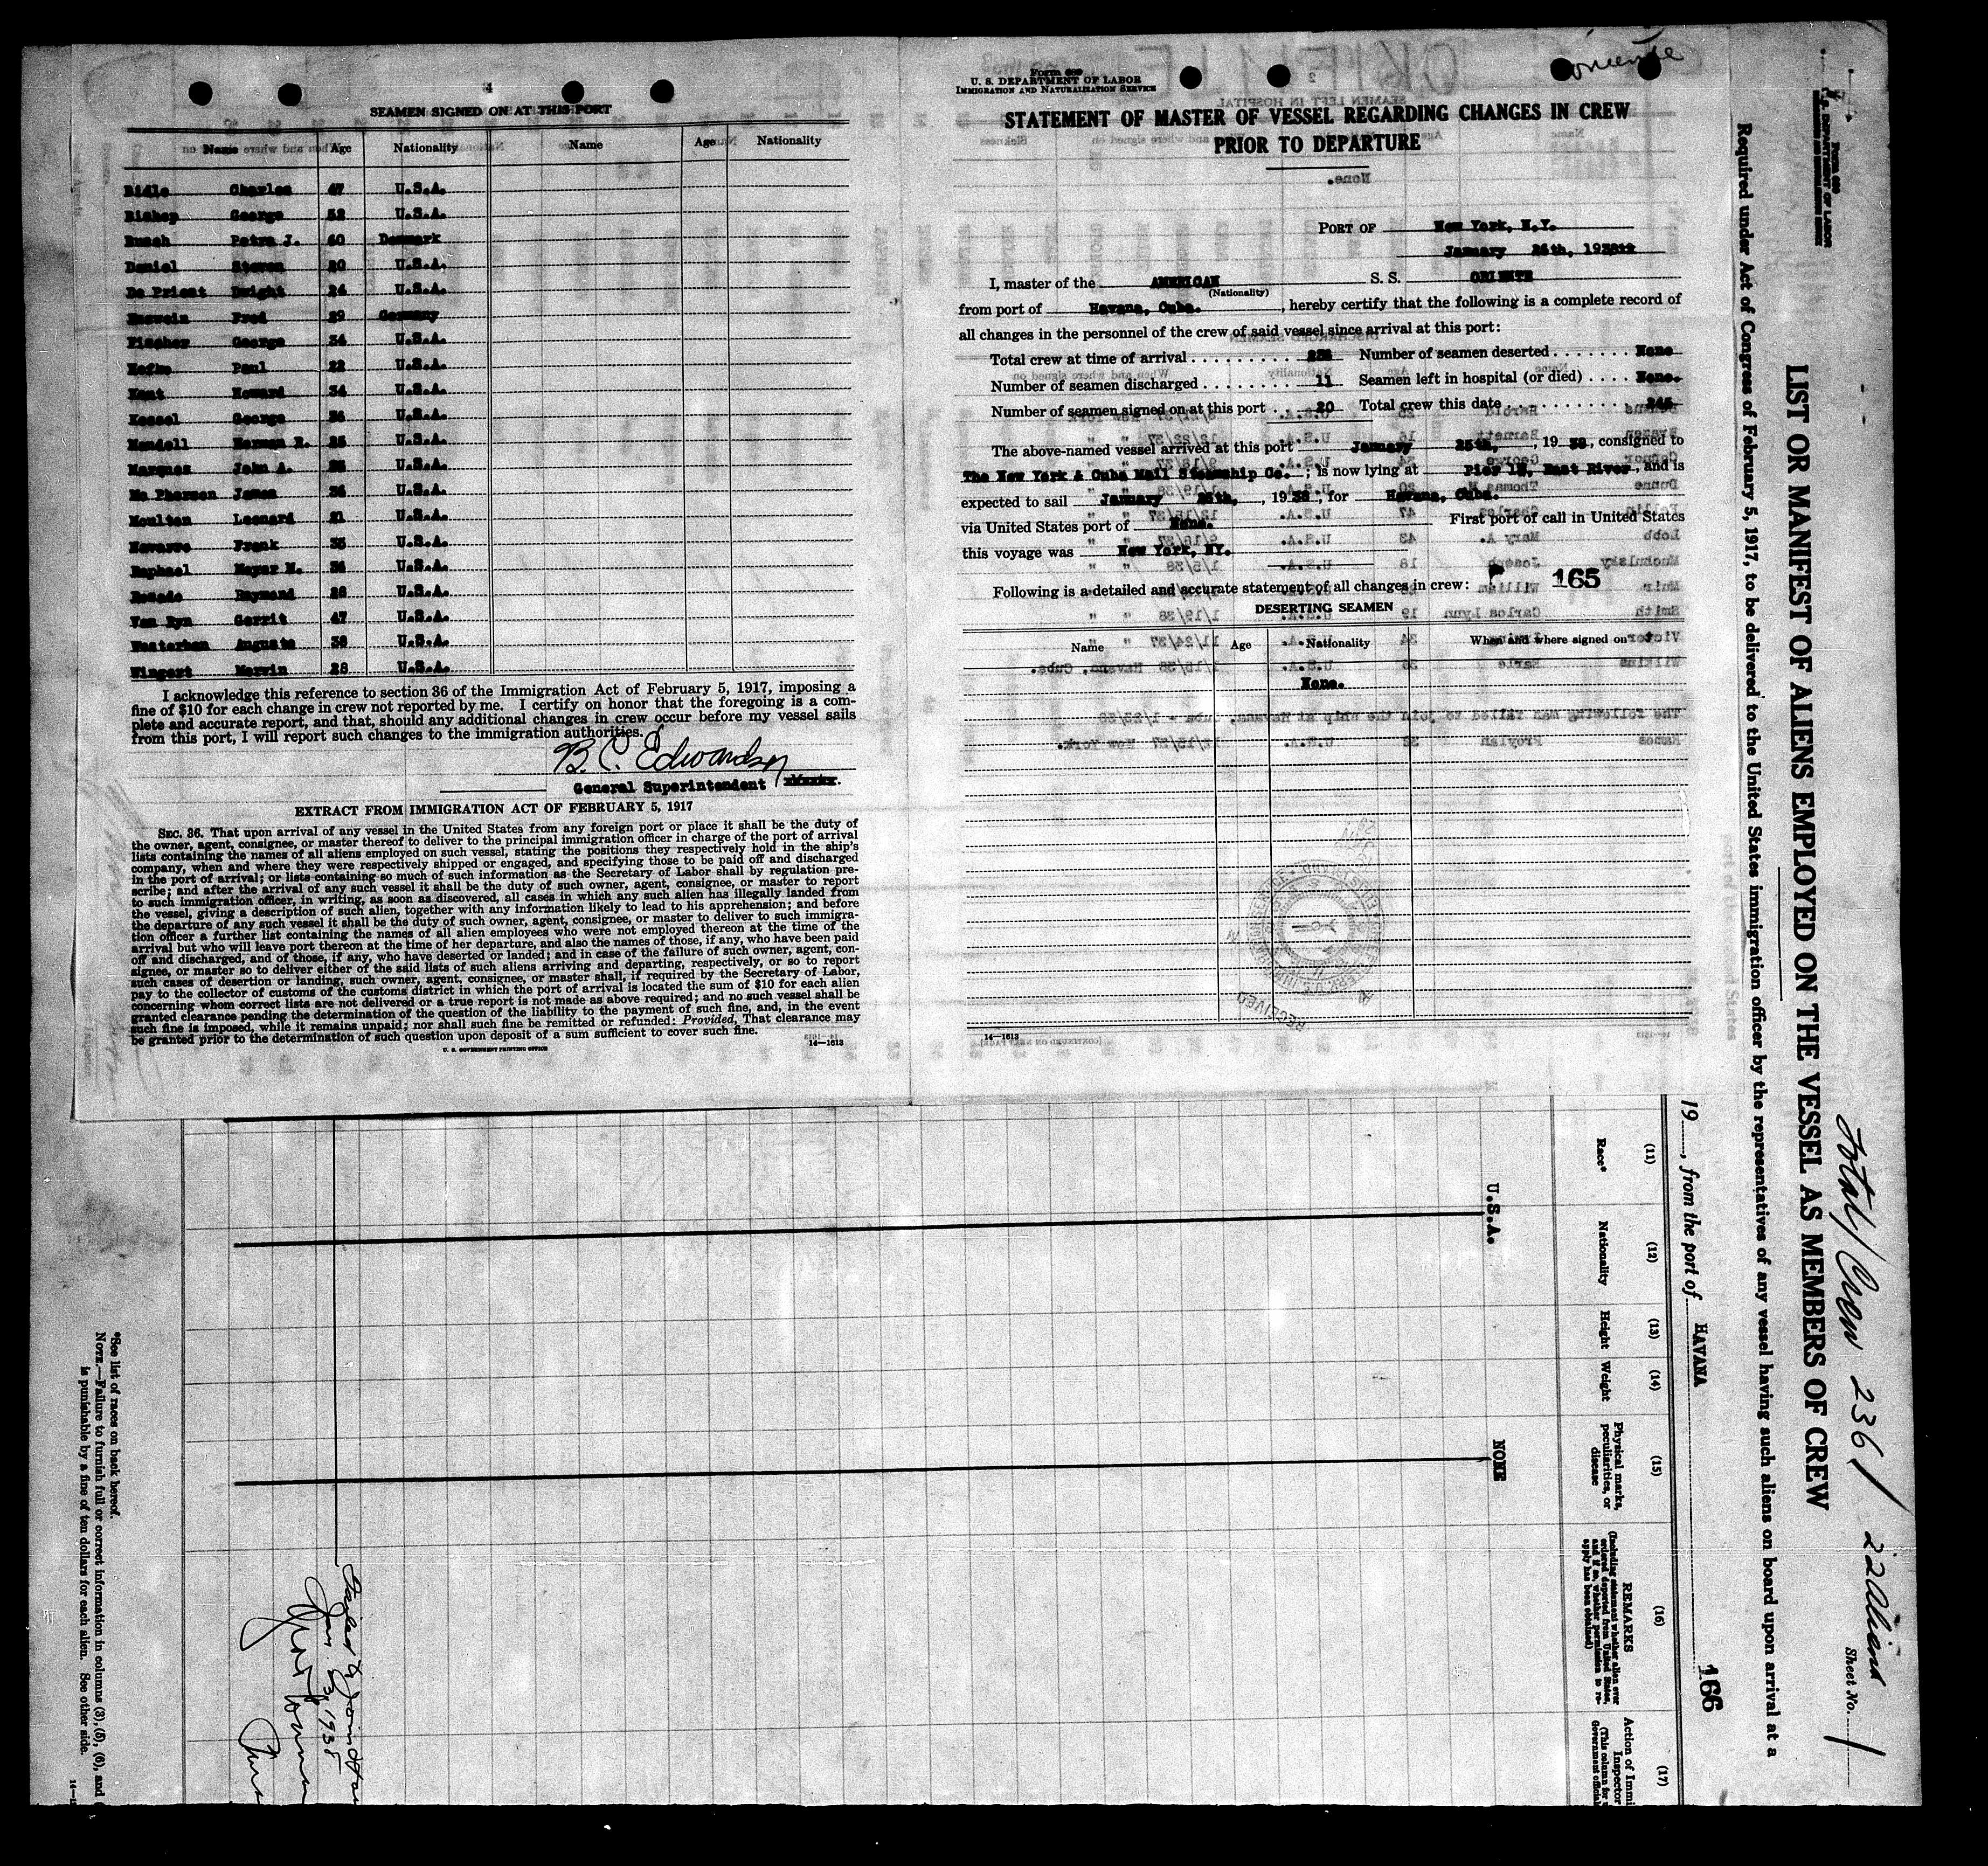 4
SEAMEN SIGNED ON AT THIS PORT
Name Age Nationality Name Age Nationality
Charles 47 U.S.A.
Bishop George 52 U.S.A.
Busch Petra J. 60 Denmark
Daniel Steven 20 U.S.A.
De Priest Dwight 24 U.S.A.
Fred 29 Germany
Fischer George 34 U.S.A.
Paul 22 U.S.A.
Kent Howard 34 U.S.A.
Kessel George 36 U.S.A.
Mandell Herman R. 25 U.S.A.
Marques John A. U.S.A.
Mc Pherson James 36 U.S.A.
Moulton Leonard 21 U.S.A.
Navarro Frank 35 U.S.A.
Raphael Meyer M. U.S.A.
Rosado Raymond 28 U.S.A.
Van Ryn Gerrit 47 U.S.A.
Westerban Auguste 38 U.S.A.
Wingert Marvin 28 U.S.A.
I acknowledge this reference to section 36 of the Immigration Act of February 5, 1917, imposing a
fine of $10 for each change in crew not reported by me. I certify on honor that the foregoing is a com-
plete and accurate report, and that, should any additional changes in crew occur before my vessel sails
from this port, I will report such changes to the immigration authorities.
B. C. Edwardsen
General Superintendent
EXTRACT FROM IMMIGRATION ACT OF FEBRUARY 5, 1917
SEC. 36. That upon arrival of any vessel in the United States from any foreign port or place it shall be the duty of
the owner, agent, consignee, or master thereof to deliver to the principal immigration officer in charge of the port of arrival
lists containing the names of all aliens employed on such vessel, stating the positions they respectively hold in the ship's
company, when and where they were respectively shipped or engaged, and specifying those to be paid off and discharged
in the port of arrival; or lists containing so much of such information as the Secretary of Labor shall by regulation pre-
scribe; and after the arrival of any such vessel it shall be the duty of such owner, agent, consignee, or master to report
to such immigration officer, in writing, as soon as discovered, all cases in which any such alien has illegally landed from
the vessel, giving a description of such alien, together with any information likely to lead to his apprehension; and before
the departure of any such vessel it shall be the duty of such owner, agent, consignee, or master to deliver to such immigra-
tion officer a further list containing the names of all alien employees who were not employed thereon at the time of the
arrival but who will leave port thereon at the time of her departure, and also the names of those, if any, who have been paid
off and discharged, and of those, if any, who have deserted or landed; and in case of the failure of such owner, agent, con-
signee, or master so to deliver either of the said lists of such aliens arriving and departing, respectively, or so to report
such cases of desertion or landing, such owner, agent, consignee, or master shall, if required by the Secretary of Labor,
pay to the collector of customs of the customs district in which the port of arrival is located the sum of $10 for each alien
concerning whom correct lists are not delivered or a true report is not made as above required; and no such vessel shall be
granted clearance pending the determination of the question of the liability to the payment of such fine, and, in the event
such fine is imposed, while it remains unpaid; nor shall such fine be remitted or refunded: Provided, That clearance may
be granted prior to the determination of such question upon deposit of a sum sufficient to cover such fine.
U. S. GOVERNMENT PRINTING OFFICE 14—1613
Form 689
U. S. DEPARTMENT OF LABOR
IMMIGRATION AND NATURALIZATION SERVICE
STATEMENT OF MASTER OF VESSEL REGARDING CHANGES IN CREW
PRIOR TO DEPARTURE
PORT OF New York, N.Y.
January
I, master of the AMERICAN S. S. ORIENTE
(Nationality)
from port of Havana, Cuba. , hereby certify that the following is a complete record of
all changes in the personnel of the crew of said vessel since arrival at this port:
Total crew at time of arrival 236 Number of seamen deserted None
Number of seamen discharged 11 Seamen left in hospital (or died) None.
Number of seamen signed on at this port 20 Total crew this date 245
The above-named vessel arrived at this port January 25th, , 19 38, consigned to
The New York & Cuba Mail Steamship Co. ; is now lying at Pier 13, East River , and is
expected to sail January , 19 38, for Havana, Cuba.
via United States port of None. First port of call in United States
this voyage was New York, NY.
Following is a detailed and accurate statement of all changes in crew: 165
DESERTING SEAMEN
Name Age Nationality When and where signed on
None.
14—1613
Form 689
U. S. DEPARTMENT OF LABOR
LIST OR MANIFEST OF ALIENS EMPLOYED ON THE VESSEL AS MEMBERS OF CREW
Required under Act of Congress of February 5, 1917, to be delivered to the United States immigration officer by the representatives of any vessel having such aliens on board upon arrival at a
Total Crew 236 / 22 Aliens
Sheet No. 1
19 , from the port of HAVANA 166
(11) (12) (13) (14) (15) (16) (17)
Race* Nationality Height Weight Physical marks, peculiarities, or disease REMARKS
(Including statement whether alien ever ordered deported from United States, and if so, whether permission to re-apply has been obtained)
Action of Immi
Inspector
U.S.A. NONE
Jan. 1938
*See list of races on back hereof.
NOTE.—Failure to furnish full or correct information in columns (3), (5), (6), and (
is punishable by a fine of ten dollars for each alien. See other side.